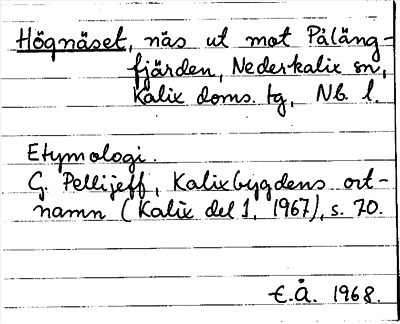 Högnäset, näs ut mot Påläng-
fjärden, Nederkalix sn,
Kalix doms. tg, Nb. l.
Etymologi.
G. Pellijeff, Kalixbygdens ort-
namn (Kalix del 1, 1967), s. 70.
E.Å. 1968.